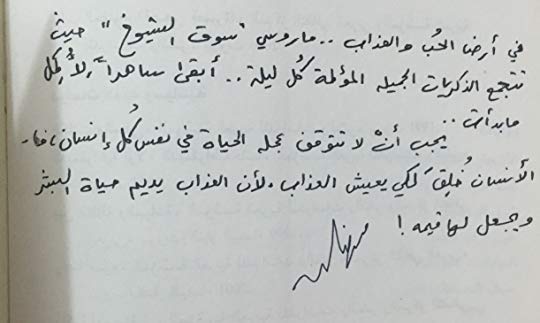 في أرض الحُب والعذاب .. ماروسي "سوق الشيوخ" حيث
تتجمع الذكريات الجميله المؤلمة كُل ليلة .. أبقى ساهراً لأُكمل
ما بدأت ..
يجب أنْ لا تتوقف عجله الحياة في نفس كُل إنسان، فـ
الأنسان خُلِقَ لكي يعيش العذاب. لأن العذاب يديم حياة البشر
ويجعل لها قيمه !